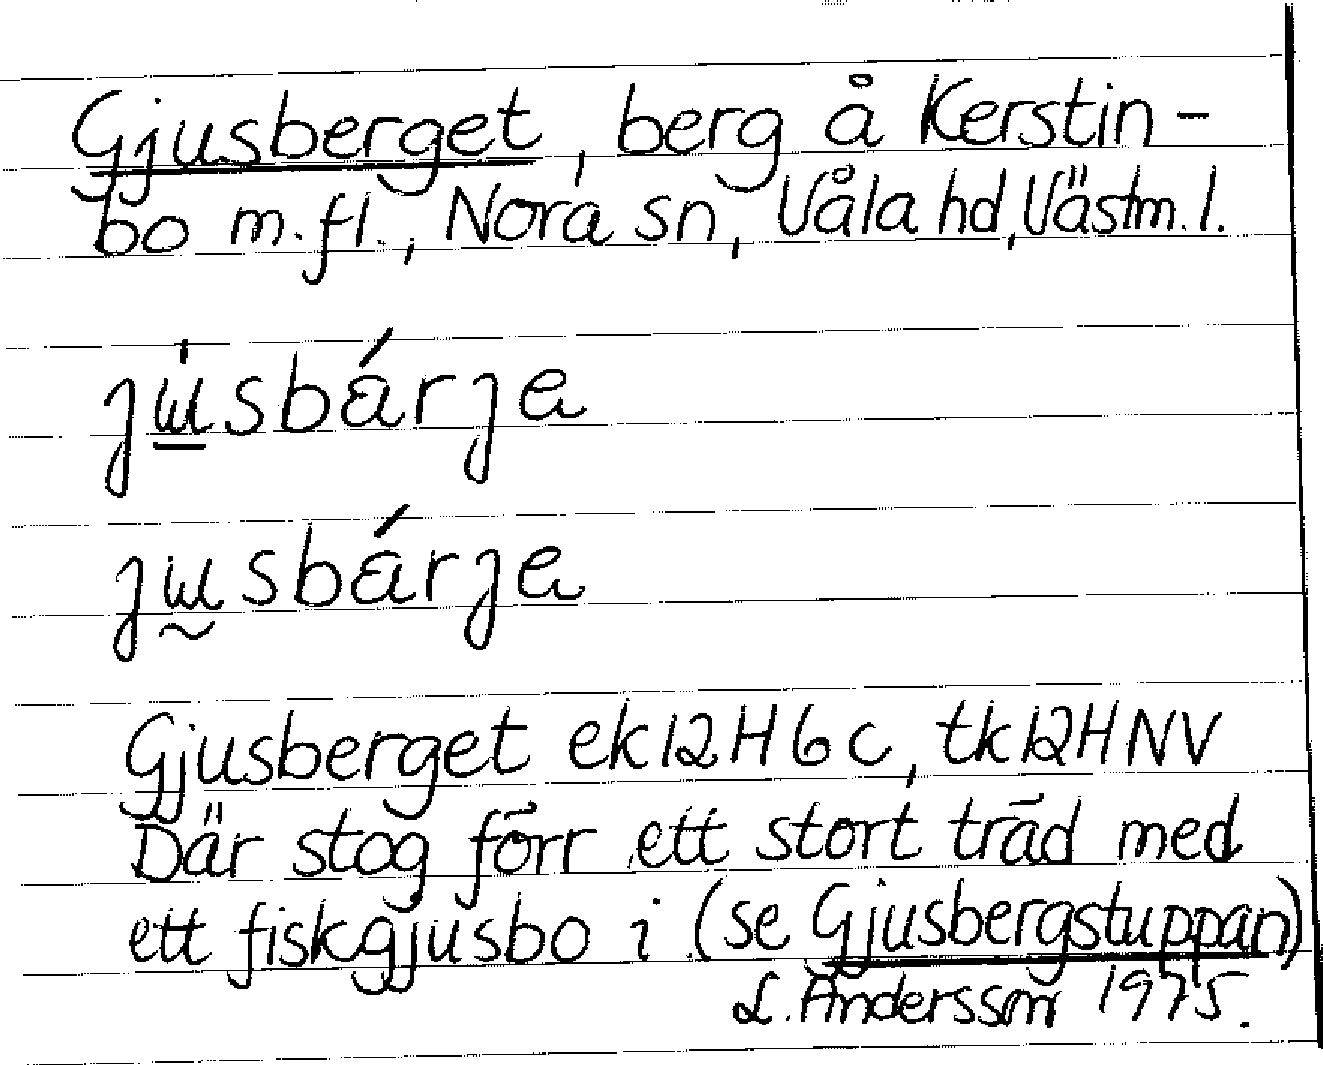 Gjusberget, berg å Kerstin-
bo m.fl., Nora sn, Våla hd, Västm. l.
jɯ̍sbárja
jɯsbárja
Gjusberget ek 12H6c, tk 12HNV
Där stog förr ett stort träd med
ett fiskgjusbo i (se Gjusbergstuppan)
L. Andersson 1975.